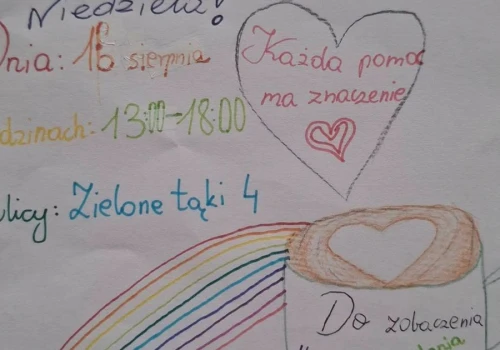 Niedziela!
Dnia: 16 sierpnia
dzinach: 13:00-18:00
ulicy: Zielone Łąki 4
Każda pomoc
ma znaczenie
Do zobaczenia